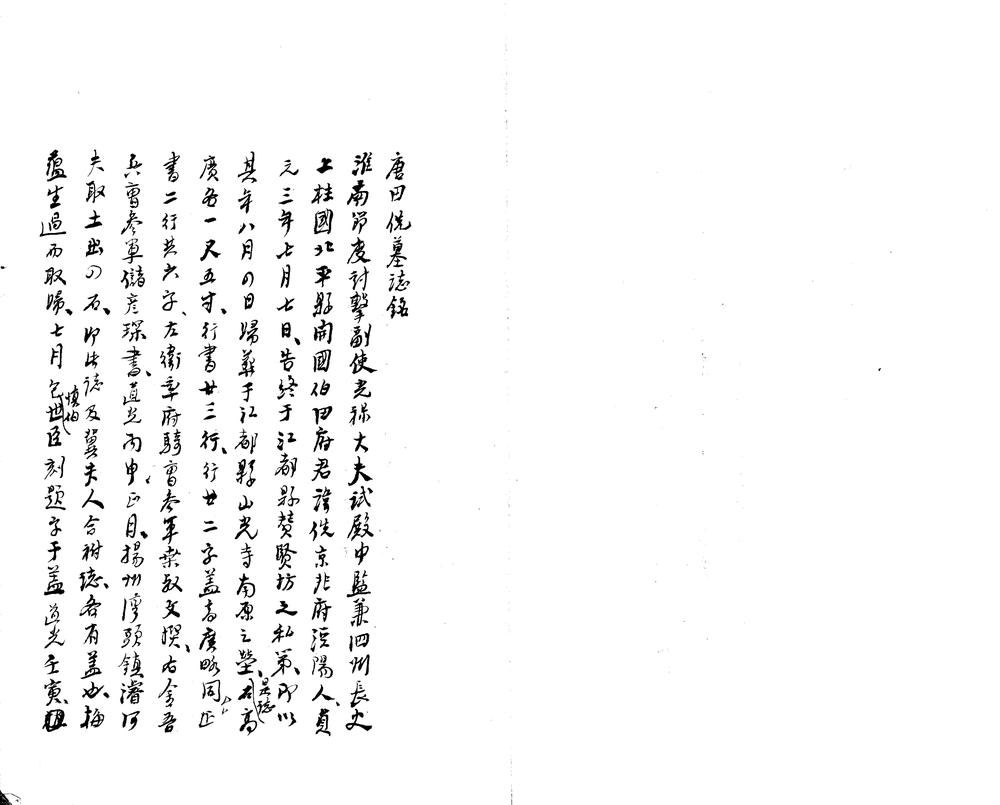 唐田侁墓誌銘
淮南節度討擊副使光祿大夫試殿中監兼泗州長史
上柱國北平縣開國伯田府君諱侁京兆府涇陽人、貞
元三年七月七日、告終于江都縣贊賢坊之私第、即以
其年八月四日歸葬于江都縣山光寺南原之塋、是誌石高
廣各一尺五寸、行書廿三行、行廿二字蓋高廣略同正
書二行共六字、左衛率府騎曹參軍桒叔文撰、右金吾
兵曹參軍儲彥琛書、道光丙申正月、揚州灣頭鎮濬河
夫取土出四石、即此誌及冀夫人合祔誌、各有蓋也、梅
蘊生過而取歸、七月包慎伯世臣刻題字于蓋道光壬寅、